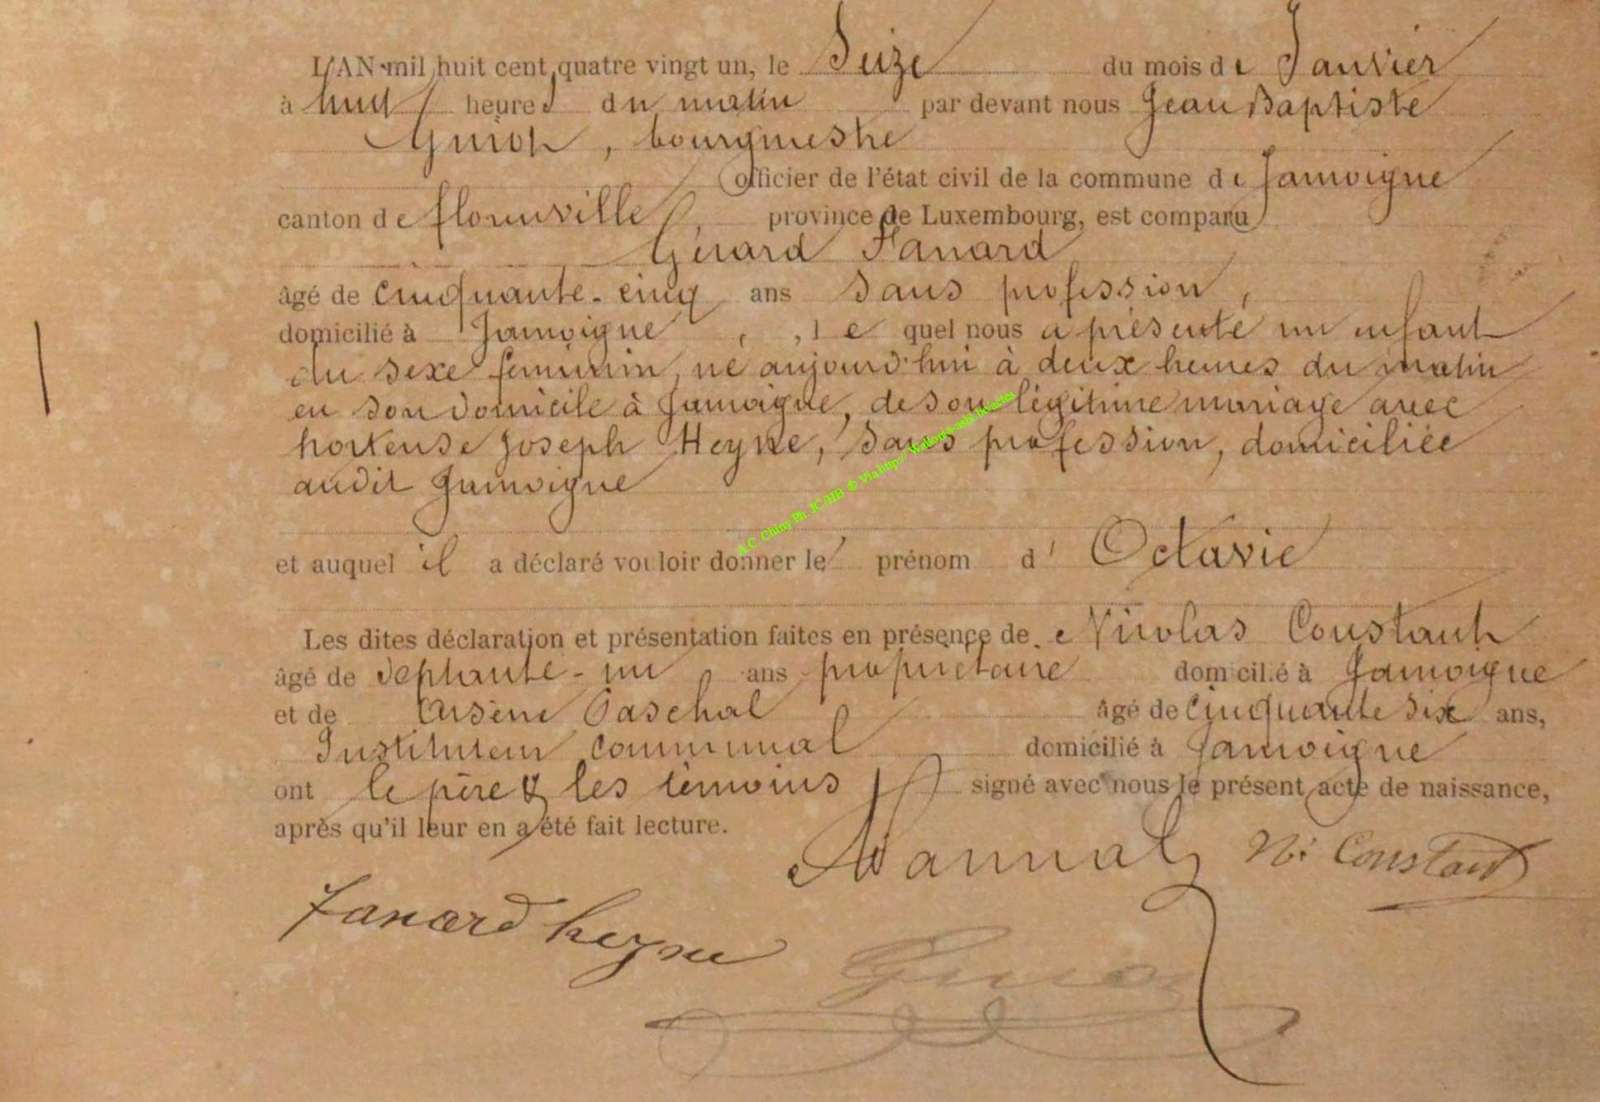 L'AN mil huit cent quatre vingt un, le Seize du mois de Janvier
à huit heures du matin par devant nous Jean Baptiste
Guiot, bourgmestre
officier de l'état civil de la commune de Jamoigne
canton de florenville, province de Luxembourg, est comparu
Gérard Fanard
âgé de cinquante-cinq ans sans profession,
domicilié à Jamoigne, , le quel nous a présenté un enfant
du sexe féminin, né aujourd'hui à deux heures du matin
en son domicile à Jamoigne, de son légitime mariage avec
hortense Joseph Heyne, sans profession, domiciliée
audit Jamoigne
A.C. Chiny Ph JC/HB © Via http://
et auquel il a déclaré vouloir donner le prénom d' Octavie
Les dites déclaration et présentation faites en présence de Nicolas Constant
âgé de septante-un ans propriétaire domicilié à Jamoigne
et de Arsène Paschal âgé de cinquante six ans,
Instituteur communal domicilié à Jamoigne
ont le père & les témoins signé avec nous le présent acte de naissance,
après qu'il leur en a été fait lecture.
Ns Constant
Fanard heyne
Guiot